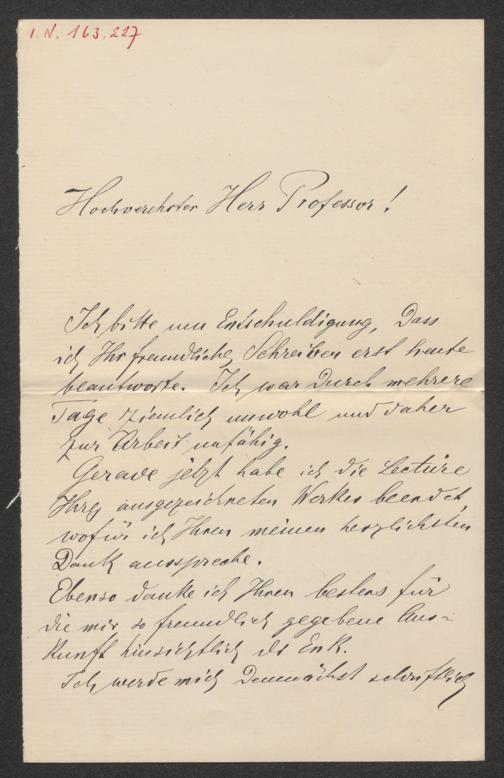 I.N. 163.227
Hochverehrter Herr Professor!
Ich bitte um Entschuldigung, dass
ich Ihr freundliches Schreiben erst heute
beantworte. Ich war durch mehrere
Tage ziemlich unwohl und daher
zur Arbeit unfähig.
Gerade jetzt habe ich die Lectüre
Ihres ausgezeichneten Werkes beendet
wofür ich Ihnen meinen herzlichsten
Dank ausspreche.
Ebenso danke ich Ihnen bestens für
die mir so freundlich gegebene Aus=
kunft hinsichtlich des Enk.
Ich werde mich demnächst schriftlich